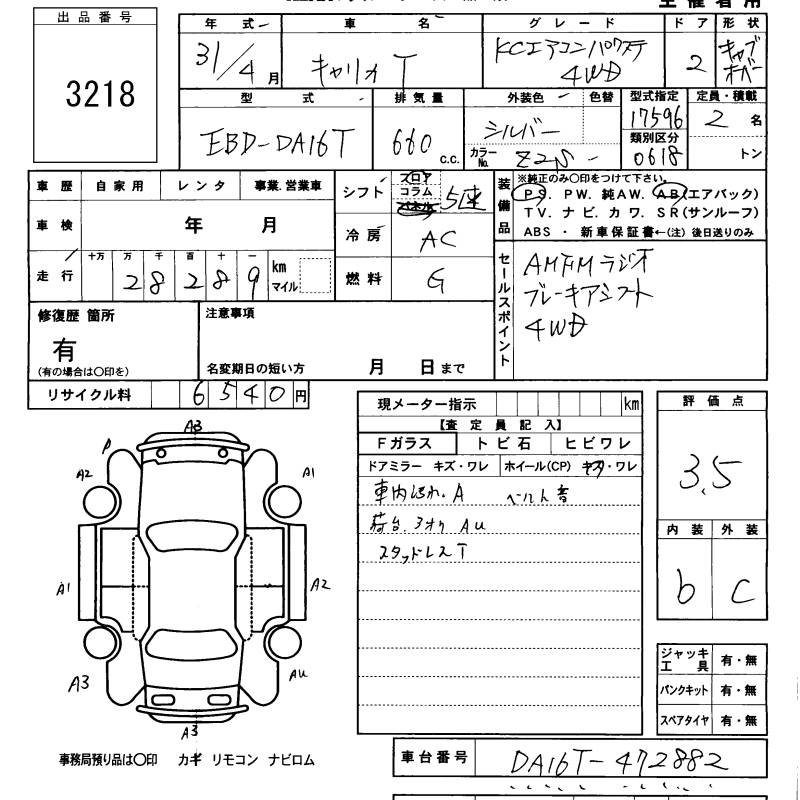 出品番号
3218
年 式 車 名 グレード ドア 形状
31/4月 キャリィ T KCエアコンパワステ 4WD 2 キャブオーバー
型 式 排気量 外装色 色替 型式指定 定員・積載
EBD-DA16T 660 c.c. シルバー 17596 2 名
カラーNo. Z2S 類別区分 0618 トン
車歴 自家用 レンタ 事業.営業車
車検 年 月
走行 十万 万 千 百 十 一 km マイル
28289
シフト フロア コラム パネル 5速
冷房 AC
燃料 G
装備品
※純正のみ〇印をつけて下さい。
PS. PW. 純AW. AB(エアバック)
TV. ナビ. カワ. SR(サンルーフ)
ABS ・ 新車保証書←(注) 後日送りのみ
セールスポイント
AMFMラジオ
ブレーキアシスト
4WD
修復歴 箇所
有
(有の場合は〇印を)
注意事項
名変期日の短い方 月 日まで
リサイクル料 6540円
現メーター指示 km
【査定員記入】
Fガラス トビ石 ヒビワレ
ドアミラー キズ・ワレ ホイール(CP) キズ・ワレ
車内よごれ.A ベルト音
荷台.アオリ AU
スタッドレスT
評価点
3.5
内装 外装
b C
ジャッキ工具 有・無
パンクキット 有・無
スペアタイヤ 有・無
A3
P
A2 A1
A1 A2
A3 AU
A3
事務局預り品は〇印 カギ リモコン ナビロム
車台番号 DA16T-472882